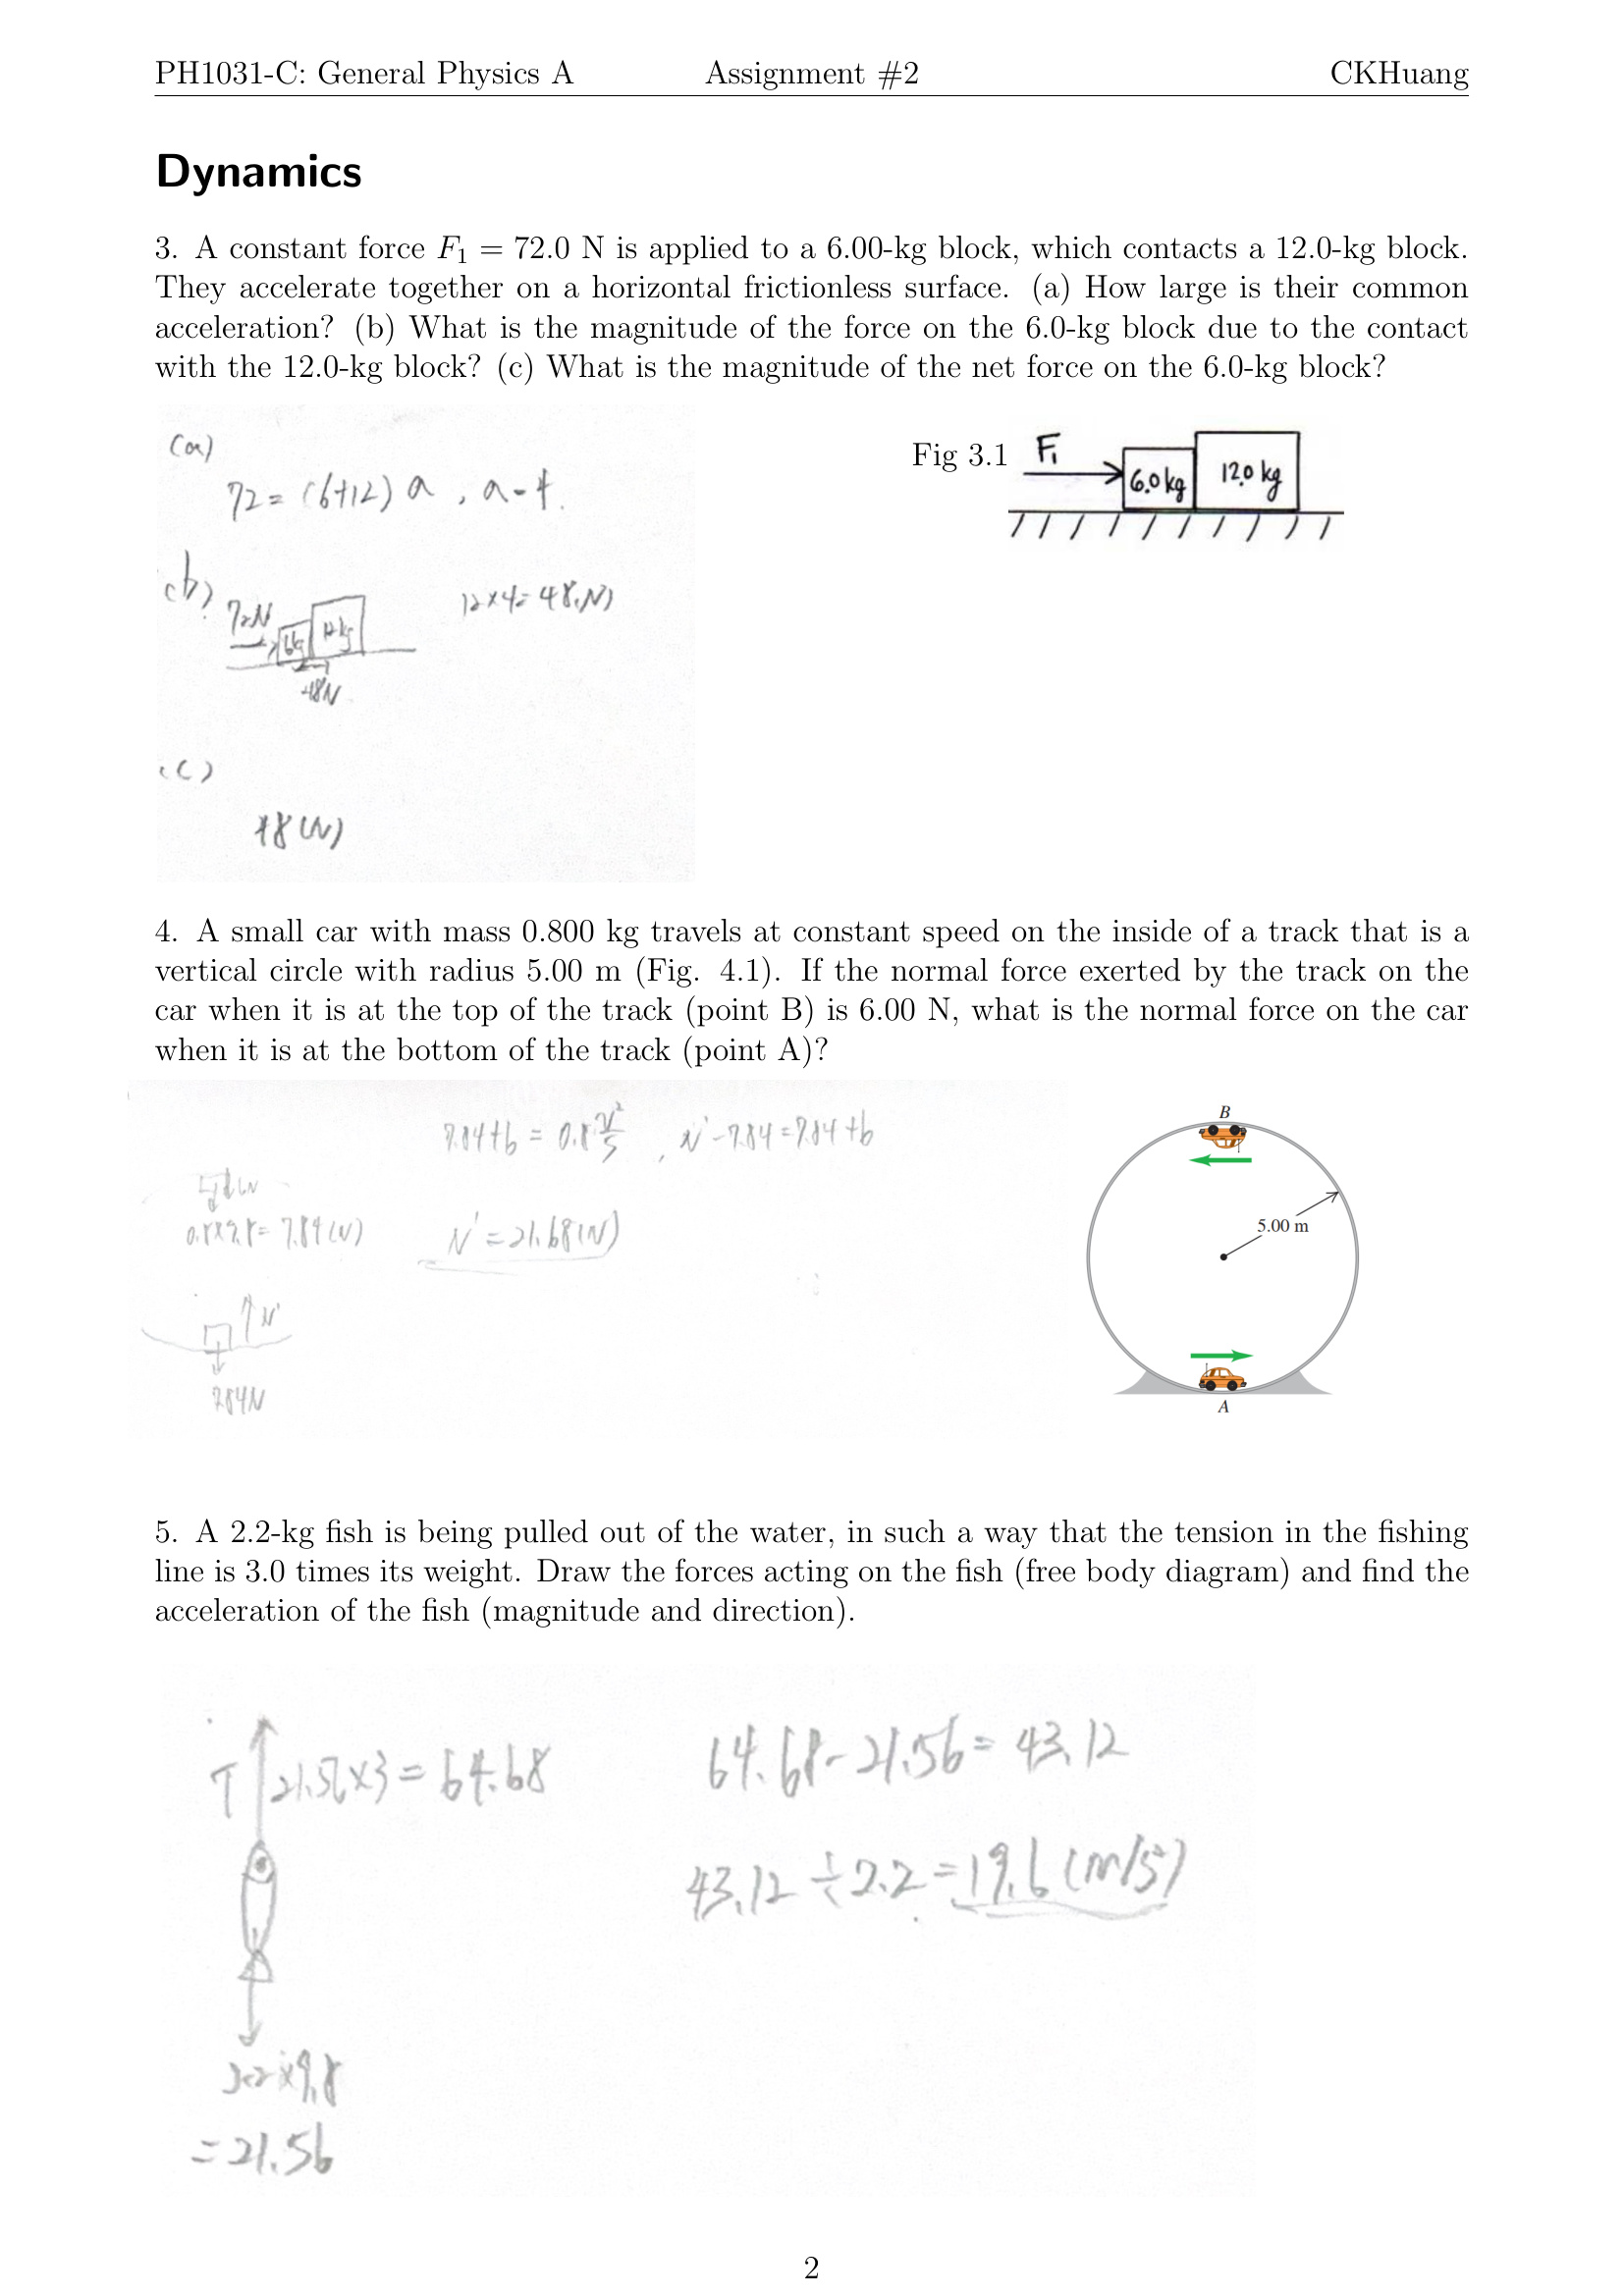 PH1031-C: General Physics A Assignment #2 CKHuang
Dynamics
3. A constant force F₁ = 72.0 N is applied to a 6.00-kg block, which contacts a 12.0-kg block.
They accelerate together on a horizontal frictionless surface. (a) How large is their common
acceleration? (b) What is the magnitude of the force on the 6.0-kg block due to the contact
with the 12.0-kg block? (c) What is the magnitude of the net force on the 6.0-kg block?
(a)
72 = (6+12) a , a = 4.
(b)
72N
6kg 12kg
48N
12×4 = 48(N)
(c)
48(N)
Fig 3.1
F₁
6.0kg 12.0 kg
4. A small car with mass 0.800 kg travels at constant speed on the inside of a track that is a
vertical circle with radius 5.00 m (Fig. 4.1). If the normal force exerted by the track on the
car when it is at the top of the track (point B) is 6.00 N, what is the normal force on the car
when it is at the bottom of the track (point A)?
7.84+6 = 0.8 v²/5 , N'-7.84=7.84+6
6N
0.8×9.8= 7.84(N)
N' = 21.68(N)
N'
7.84N
B
5.00 m
A
5. A 2.2-kg fish is being pulled out of the water, in such a way that the tension in the fishing
line is 3.0 times its weight. Draw the forces acting on the fish (free body diagram) and find the
acceleration of the fish (magnitude and direction).
T 21.56×3 = 64.68
64.68-21.56= 43.12
43.12 ÷ 2.2 = 19.6 (m/s²)
2.2×9.8
= 21.56
2